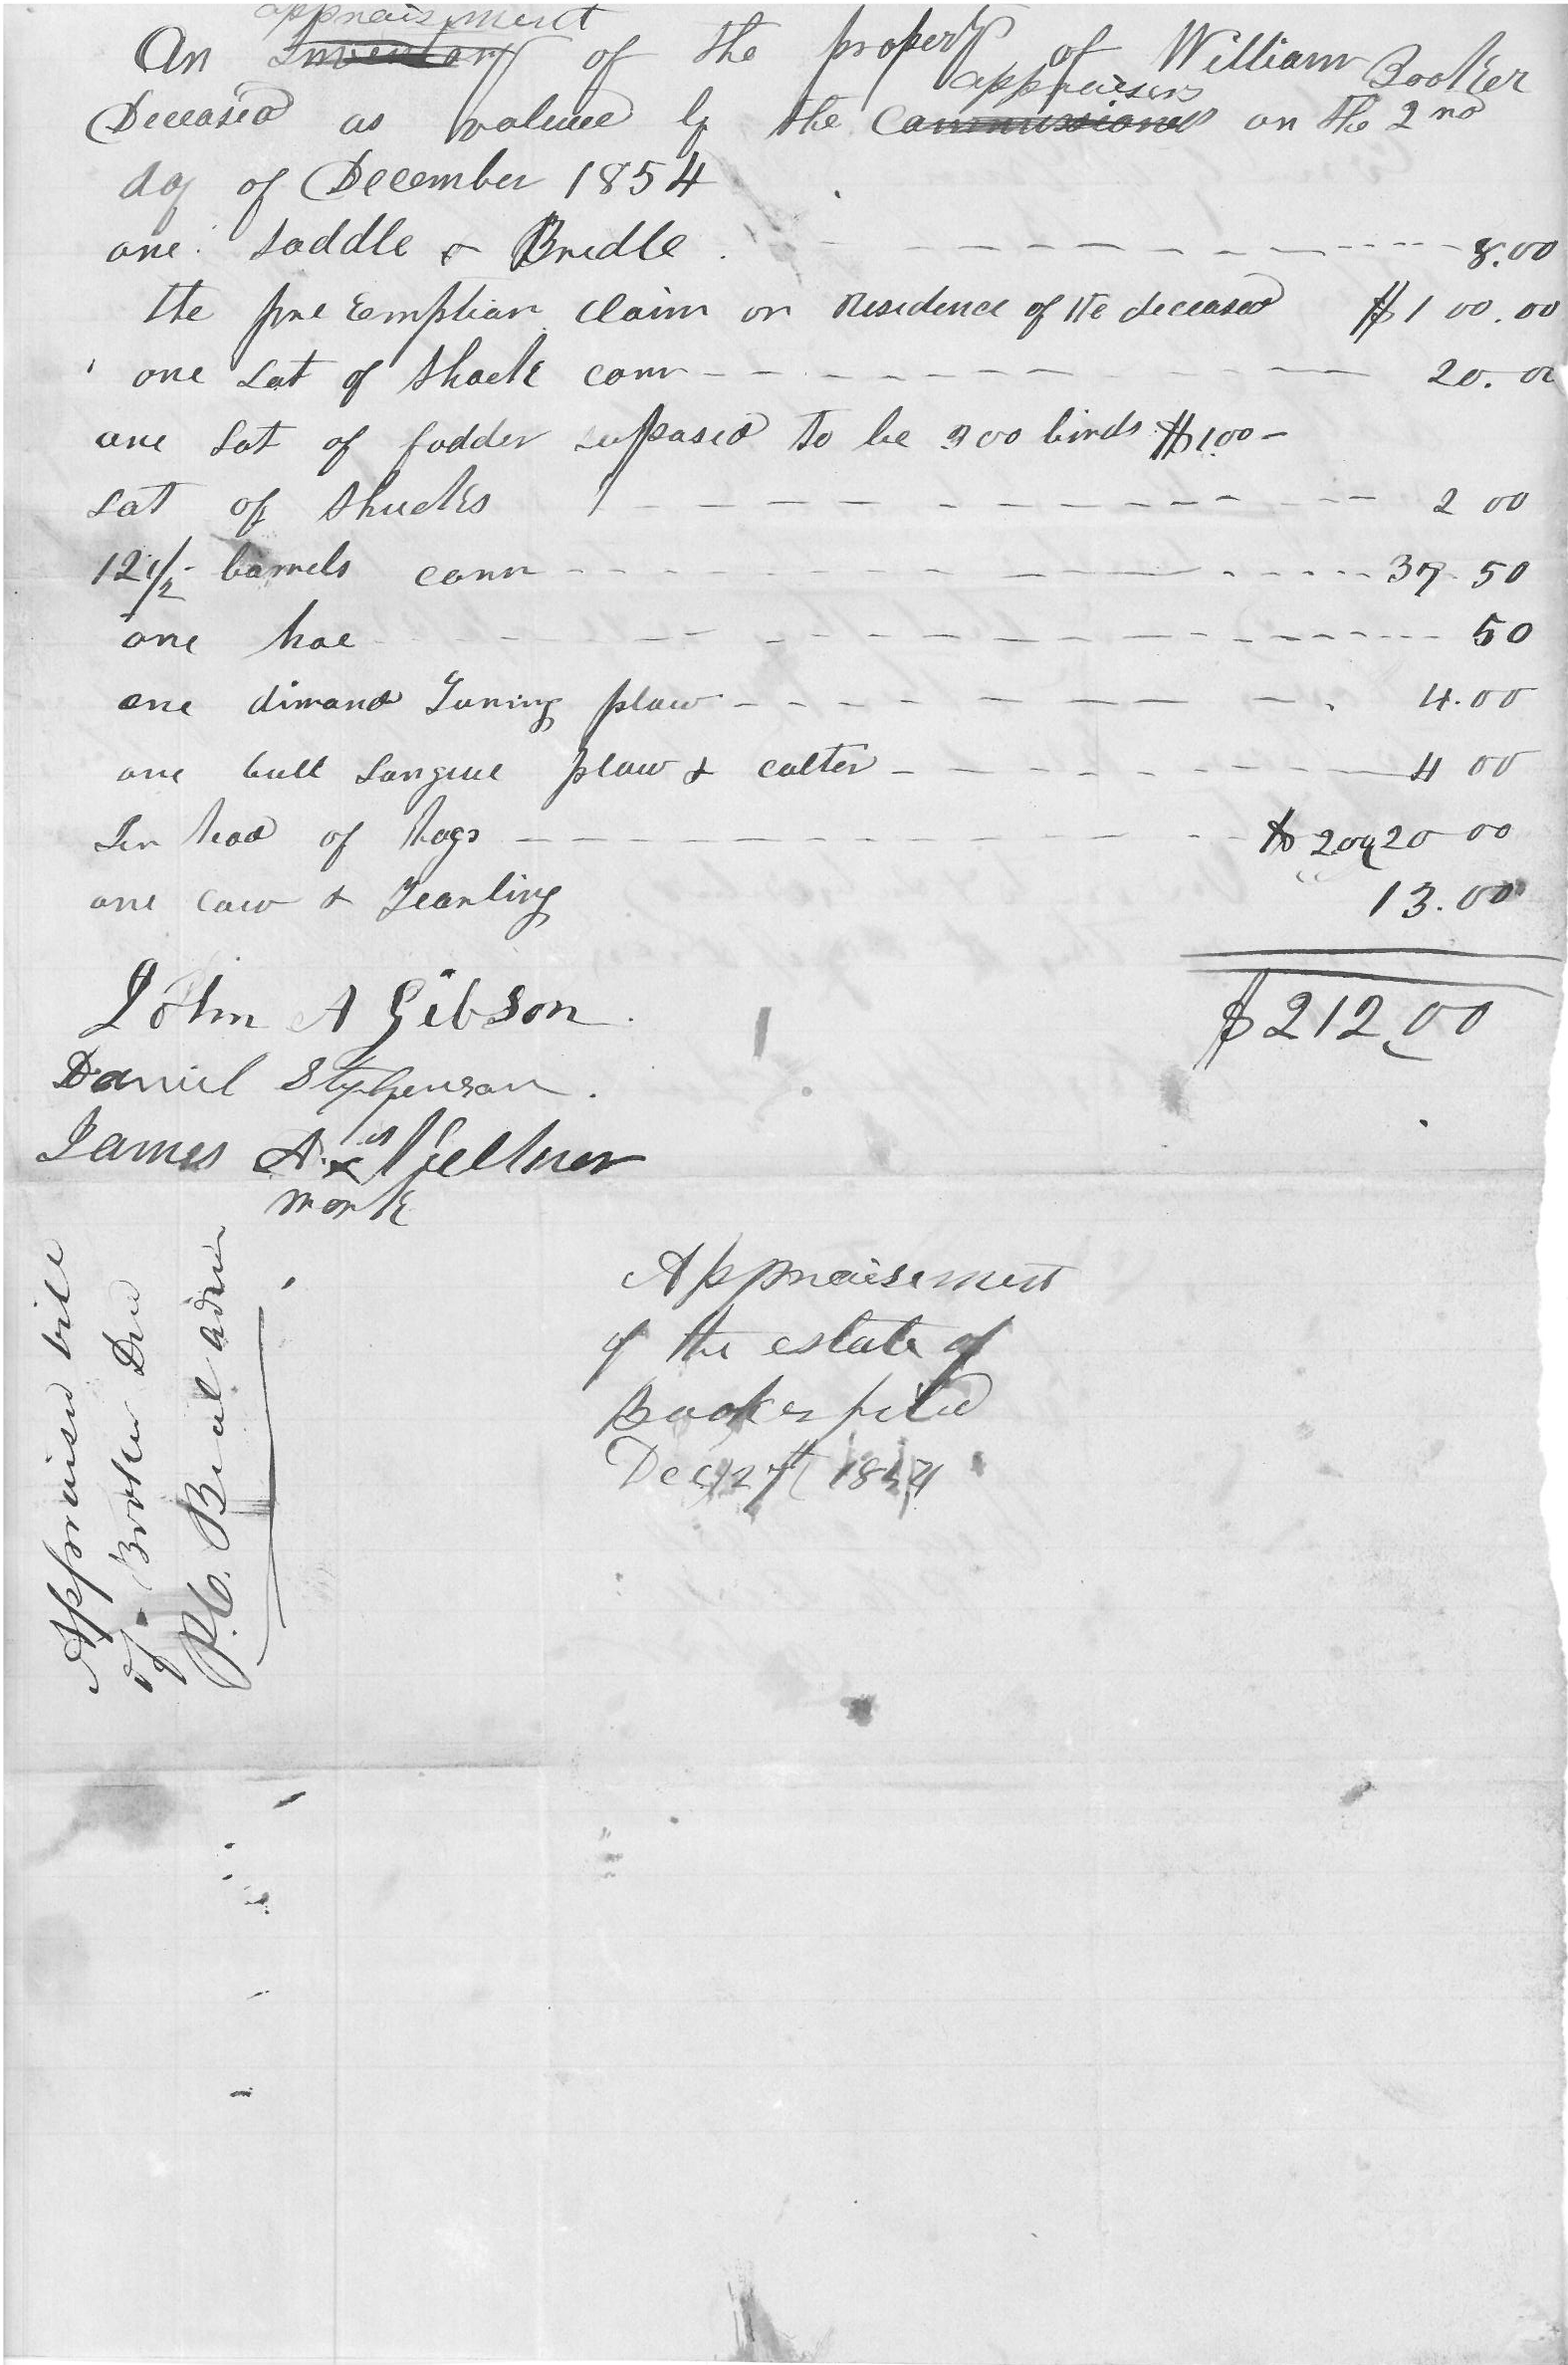 appraisment
An Inventory of the property of William Booker
appraisers
Deceased as valued by the Commissioners on the 2nd
day of December 1854
one saddle & Bridle 8.00
the pre Emption claim or Residence of the deceased $100.00
one Lot of Shock corn 20.00
one Lot of fodder suposed to be 300 binds $1.00
Lot of Shucks 2 00
12 1/2 barrels corn 37 50
one hoe 50
one dimand Turning plow 4.00
one bull Tongue plow & colter 4 00
Ten head of hogs 20 00
one cow & Yearling 13.00
$212.00
John A Gibson
Daniel Stephenson
his
James A. x
mark
Appraisement
of the estate of
Booker filed
Dec 27th 1854
Appraisers bill
of Booker Dec
P.C. Beal admr